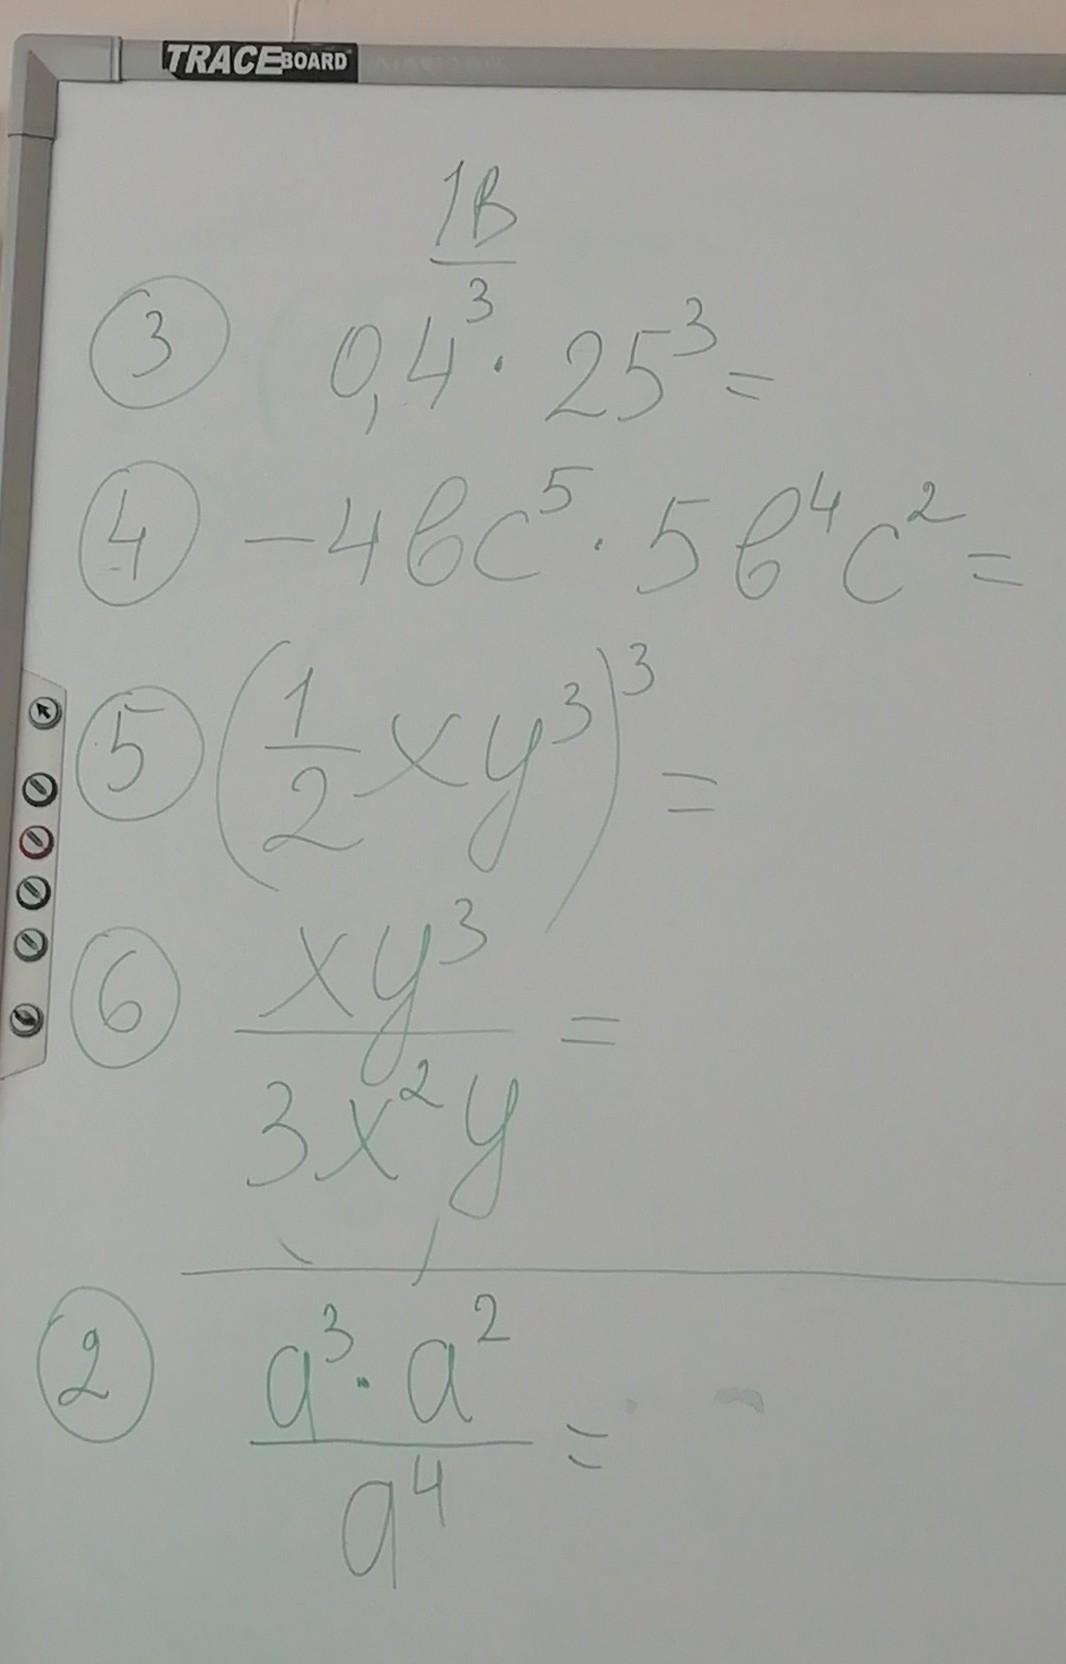 TRACEBOARD
1В
③ 0,4³ · 25³ =
④ −4вс⁵ · 5в⁴с² =
⑤ (1/2 xy³)³ =
⑥ xy³ / 3x²y =
② a³ · a² / a⁴ =